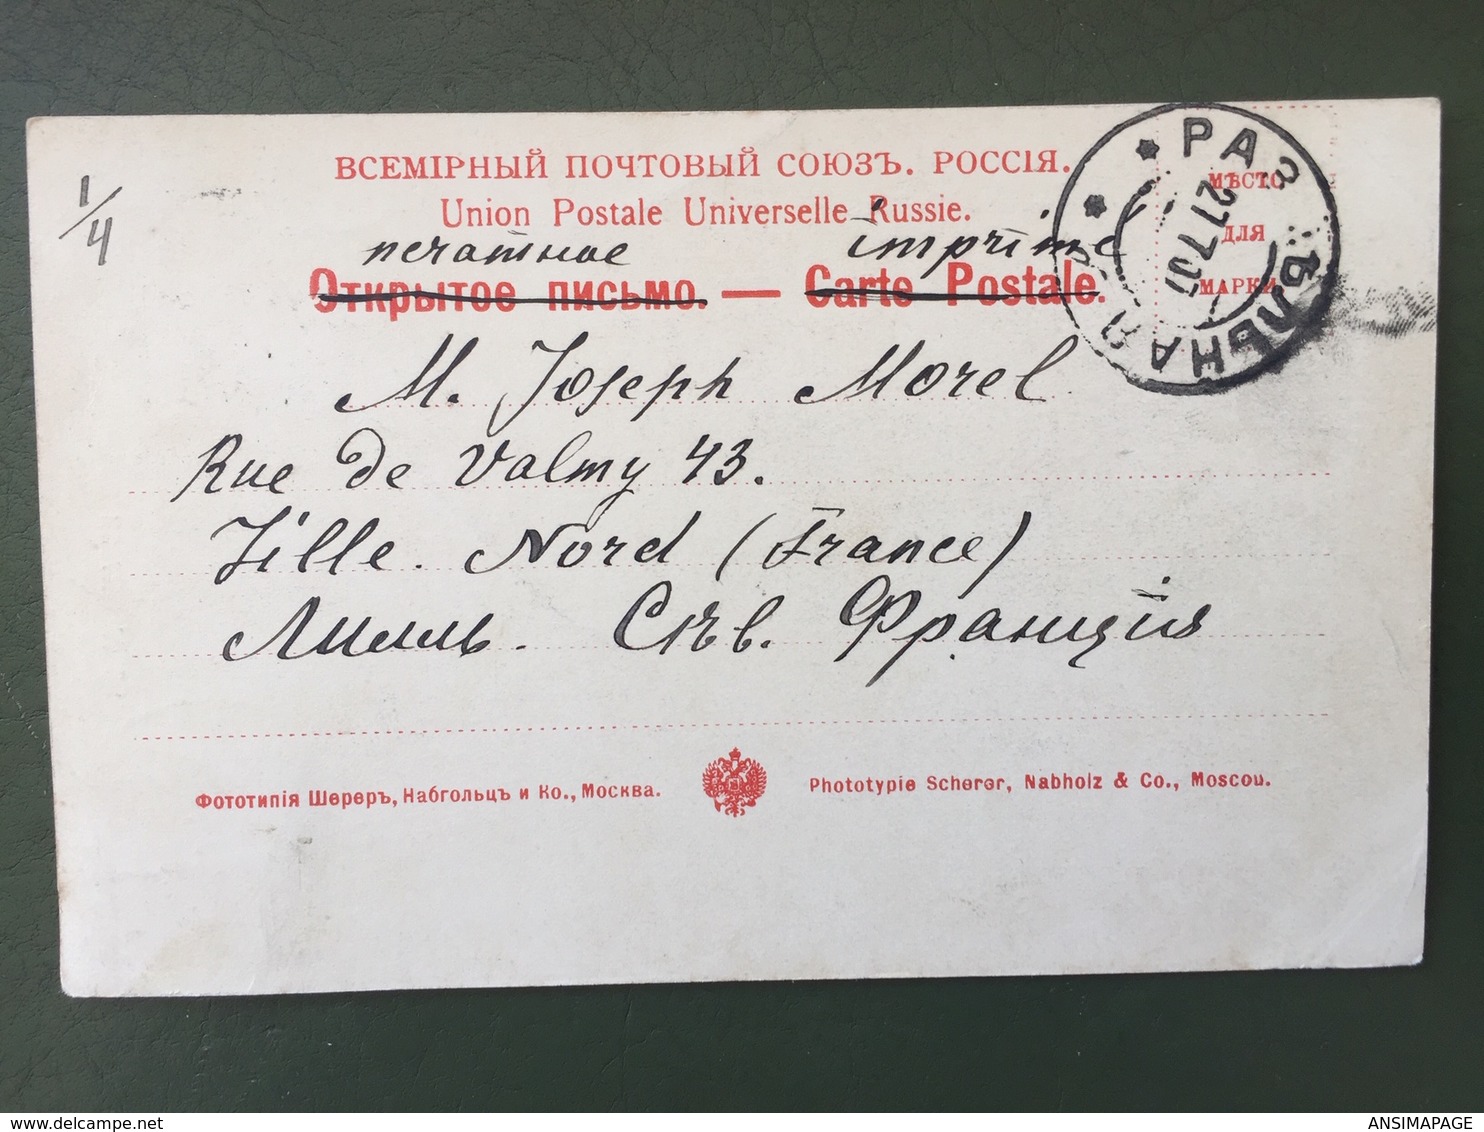 1/4
ВСЕМІРНЫЙ ПОЧТОВЫЙ СОЮЗЪ. РОССІЯ.
Union Postale Universelle Russie.
печатное imprimé
Открытое письмо. — Carte Postale.
МѢСТО
ДЛЯ
МАРКИ
РАЗДѢЛЬНАЯ
27 7 07
M. Joseph Morel
Rue de Valmy 43.
Lille. Nord (France)
Лилль. Сѣв. Франція
Фототипія Шереръ, Набгольцъ и Ко., Москва.
Phototypie Scherer, Nabholz & Co., Moscou.
delcampe.net
ANSIMAPAGE